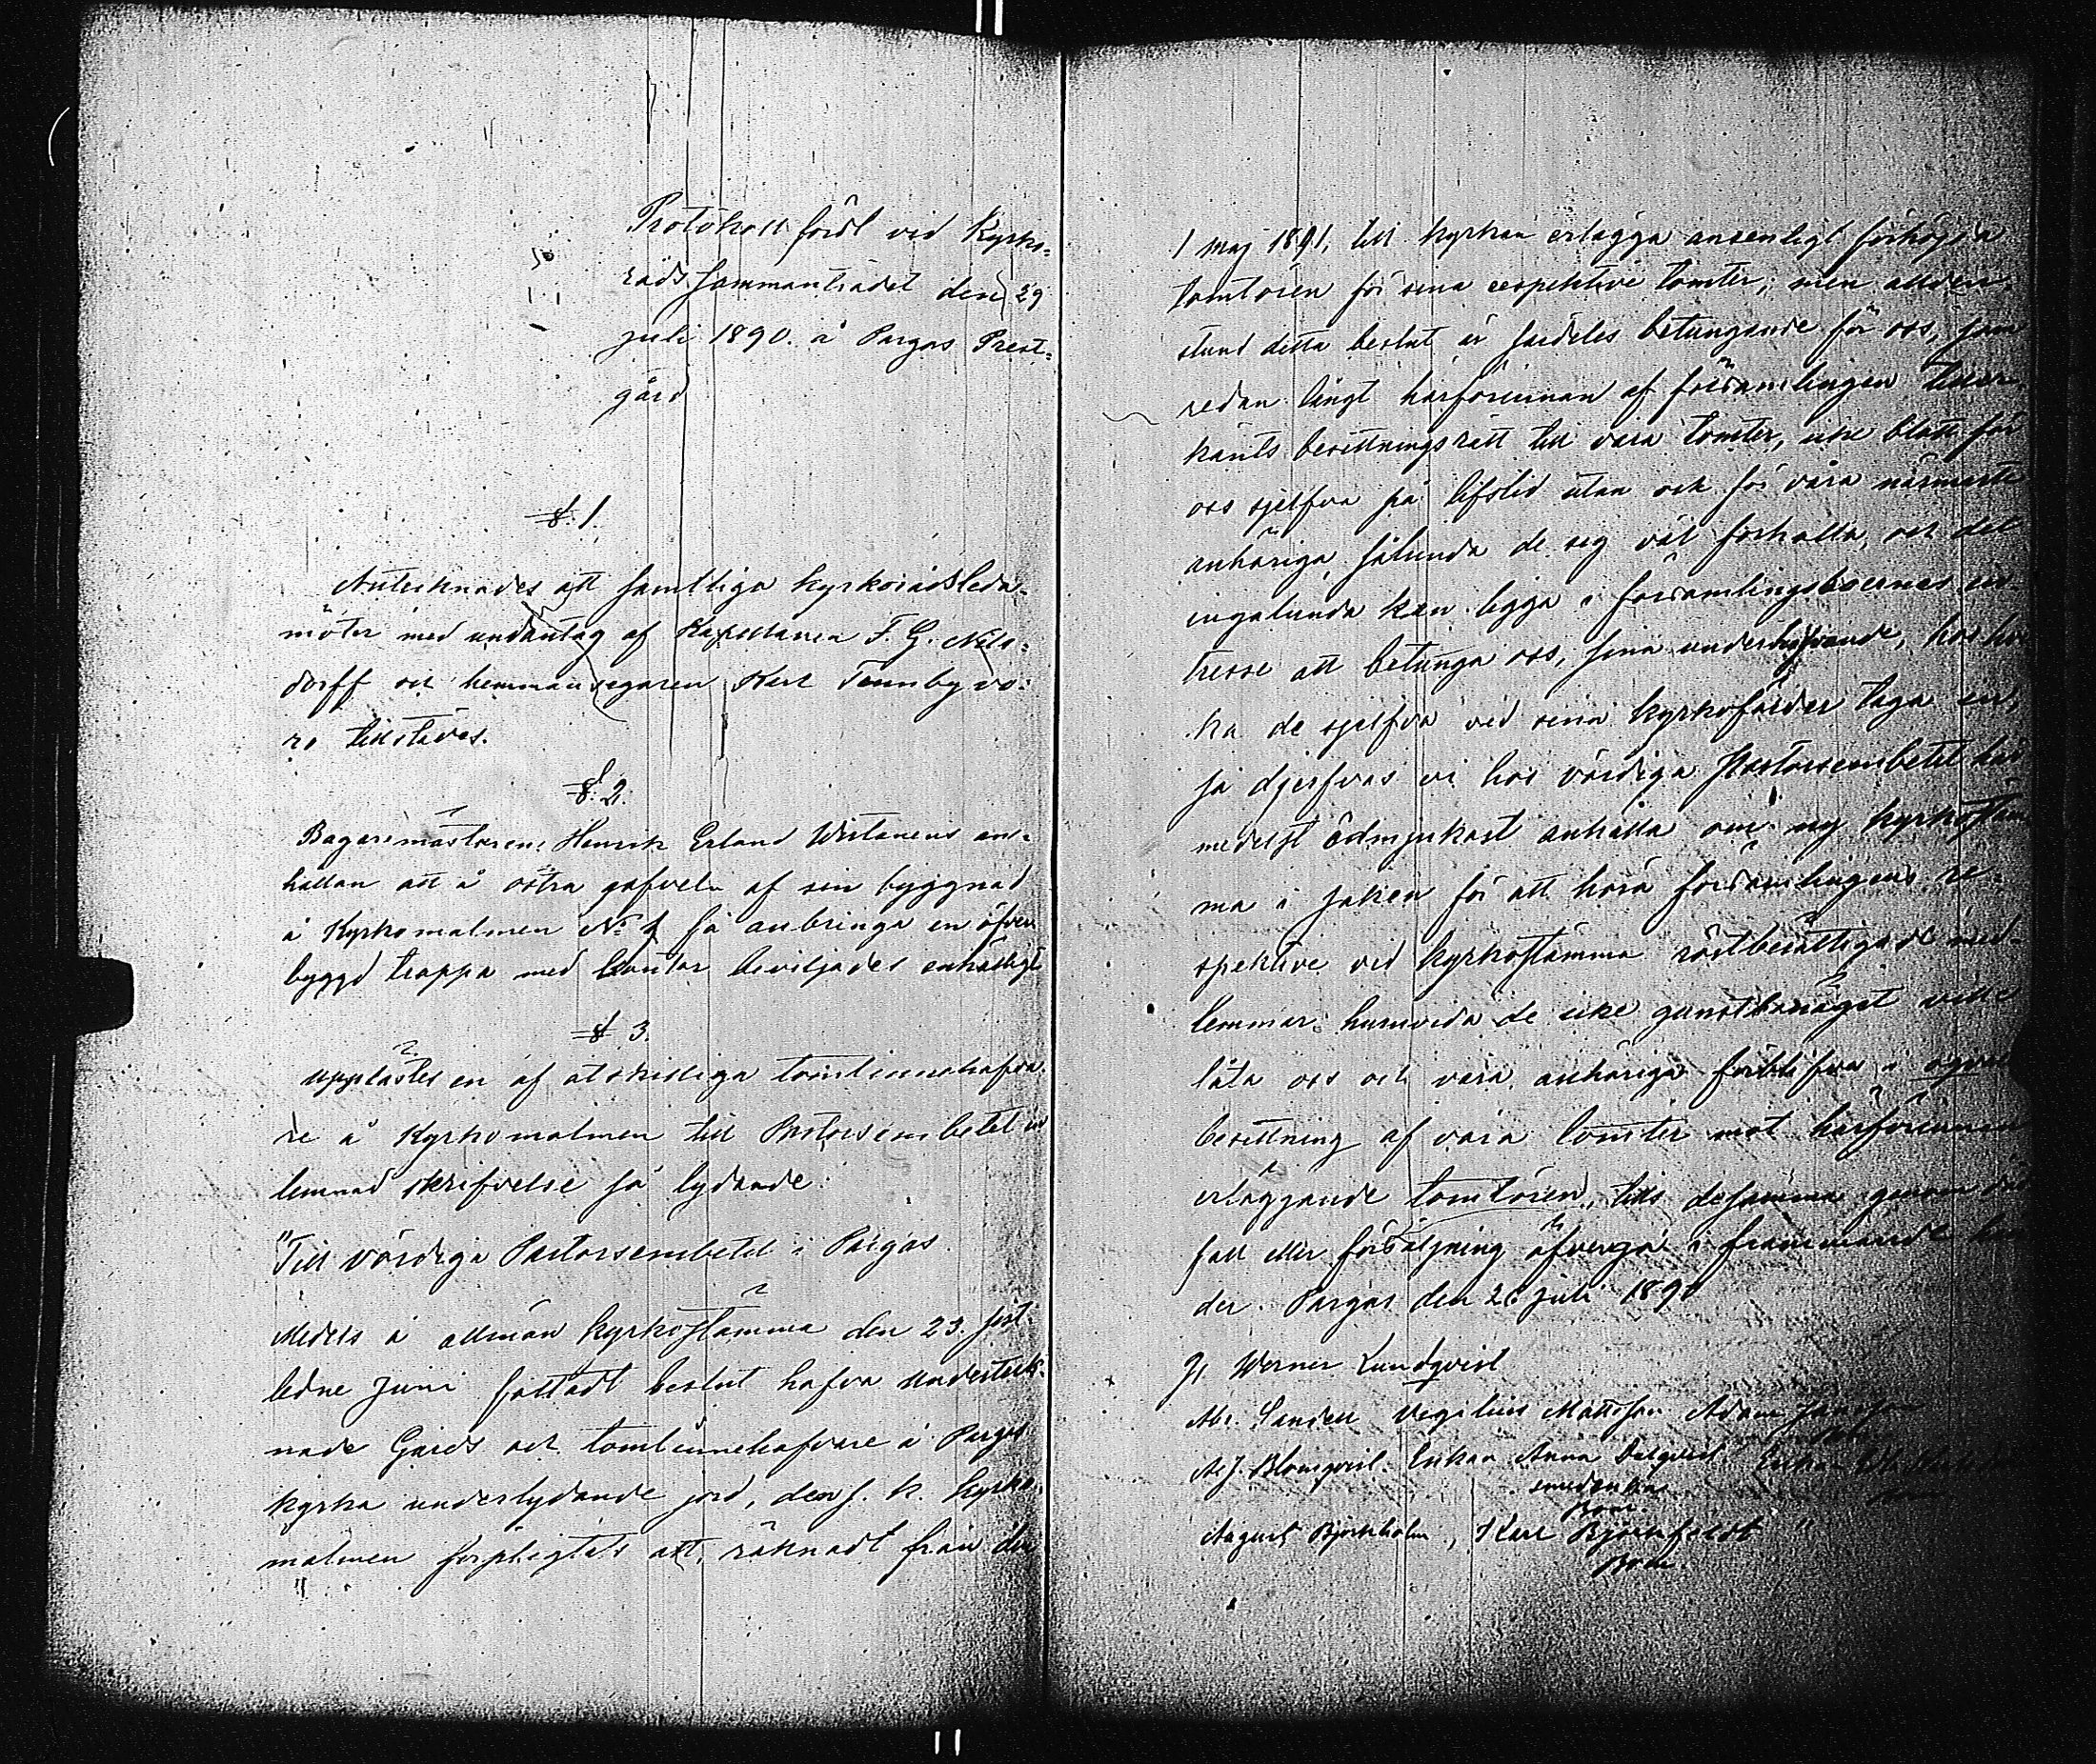 Protokoll fördt vid Kyrko-
råds sammanträdet den 29
juli 1890. å Pargas Prest-
gård
§. 1.
Antecknades att samtliga kyrkorådsleda-
möter med undantag af Kapellanen F. G. Nils-
dorff och hemmansegaren Karl Tennby vo-
ro tillstädes.
§. 2.
Bagaremästaren Henrik Erland Westanens an-
hållan att å östra gafveln af sin byggnad
å Kyrkomalmen No 1 få anbringa en öfver
byggd trappa med kontor beviljades enhälligt
§ 3.
upplästes en af åtskilliga tomtinnehafva-
re å Kyrkomalmen till Pastorsembetet in
lemnad skrifvelse så lydande:
"Till vördiga Pastorsembetet i Pargas.
Medels å allmän kyrkostämma den 23. sist-
ledne Juni fattadt beslut hafva underteck-
nade Gårds och tomtinnehafvare å Pargas
kyrka underlydande jord, den s. k. Kyrko-
malmen förpligtats att, räknadt från den
1 maj 1891, till kyrkan erlägga ansenligt förhöjda
tomtören för sina respektive tomter; men alldens-
stund detta beslut är särdeles betungande för oss, som
redan långt härförinnan af församlingen tiller-
känts besittningsrätt till våra tomter, icke blott för
oss sjelfva på lifstid utan och för våra närmaste
anhöriga, sålunda de seg väl förhålla, och det
ingalunda kan ligga i församlingsboernas in-
tresse att betunga oss, sina underlydande, hos hvil
ka de sjelfva vid sina kyrkofärder taga in,
så djerfvas vi hos vördiga Pastorsembetet här
medelst ödmjukast anhålla om ny kyrkostäm
ma i saken för att höra församlingens re-
spektive vid kyrkostämma röstberättigade med-
lemmar: huruvida de icke gunstbenäget ville
låta oss och våra anhöriga förblifva i
besittning af våra tomter mot härförinnan
erläggande tomtören, tills desamma genom döds
fall eller försäljning öfvergå i främmande hän
der. Pargas den 26 juli 1890
G. Werner Lundqvist
Ab. Sandell Vigilius Mattsson Adam Jansson
A. J. Blomqvist. Enkan Anna Dalqvist Enkan
smedenkan
August Björkholm, Karl Björkfeldt "
Bom.